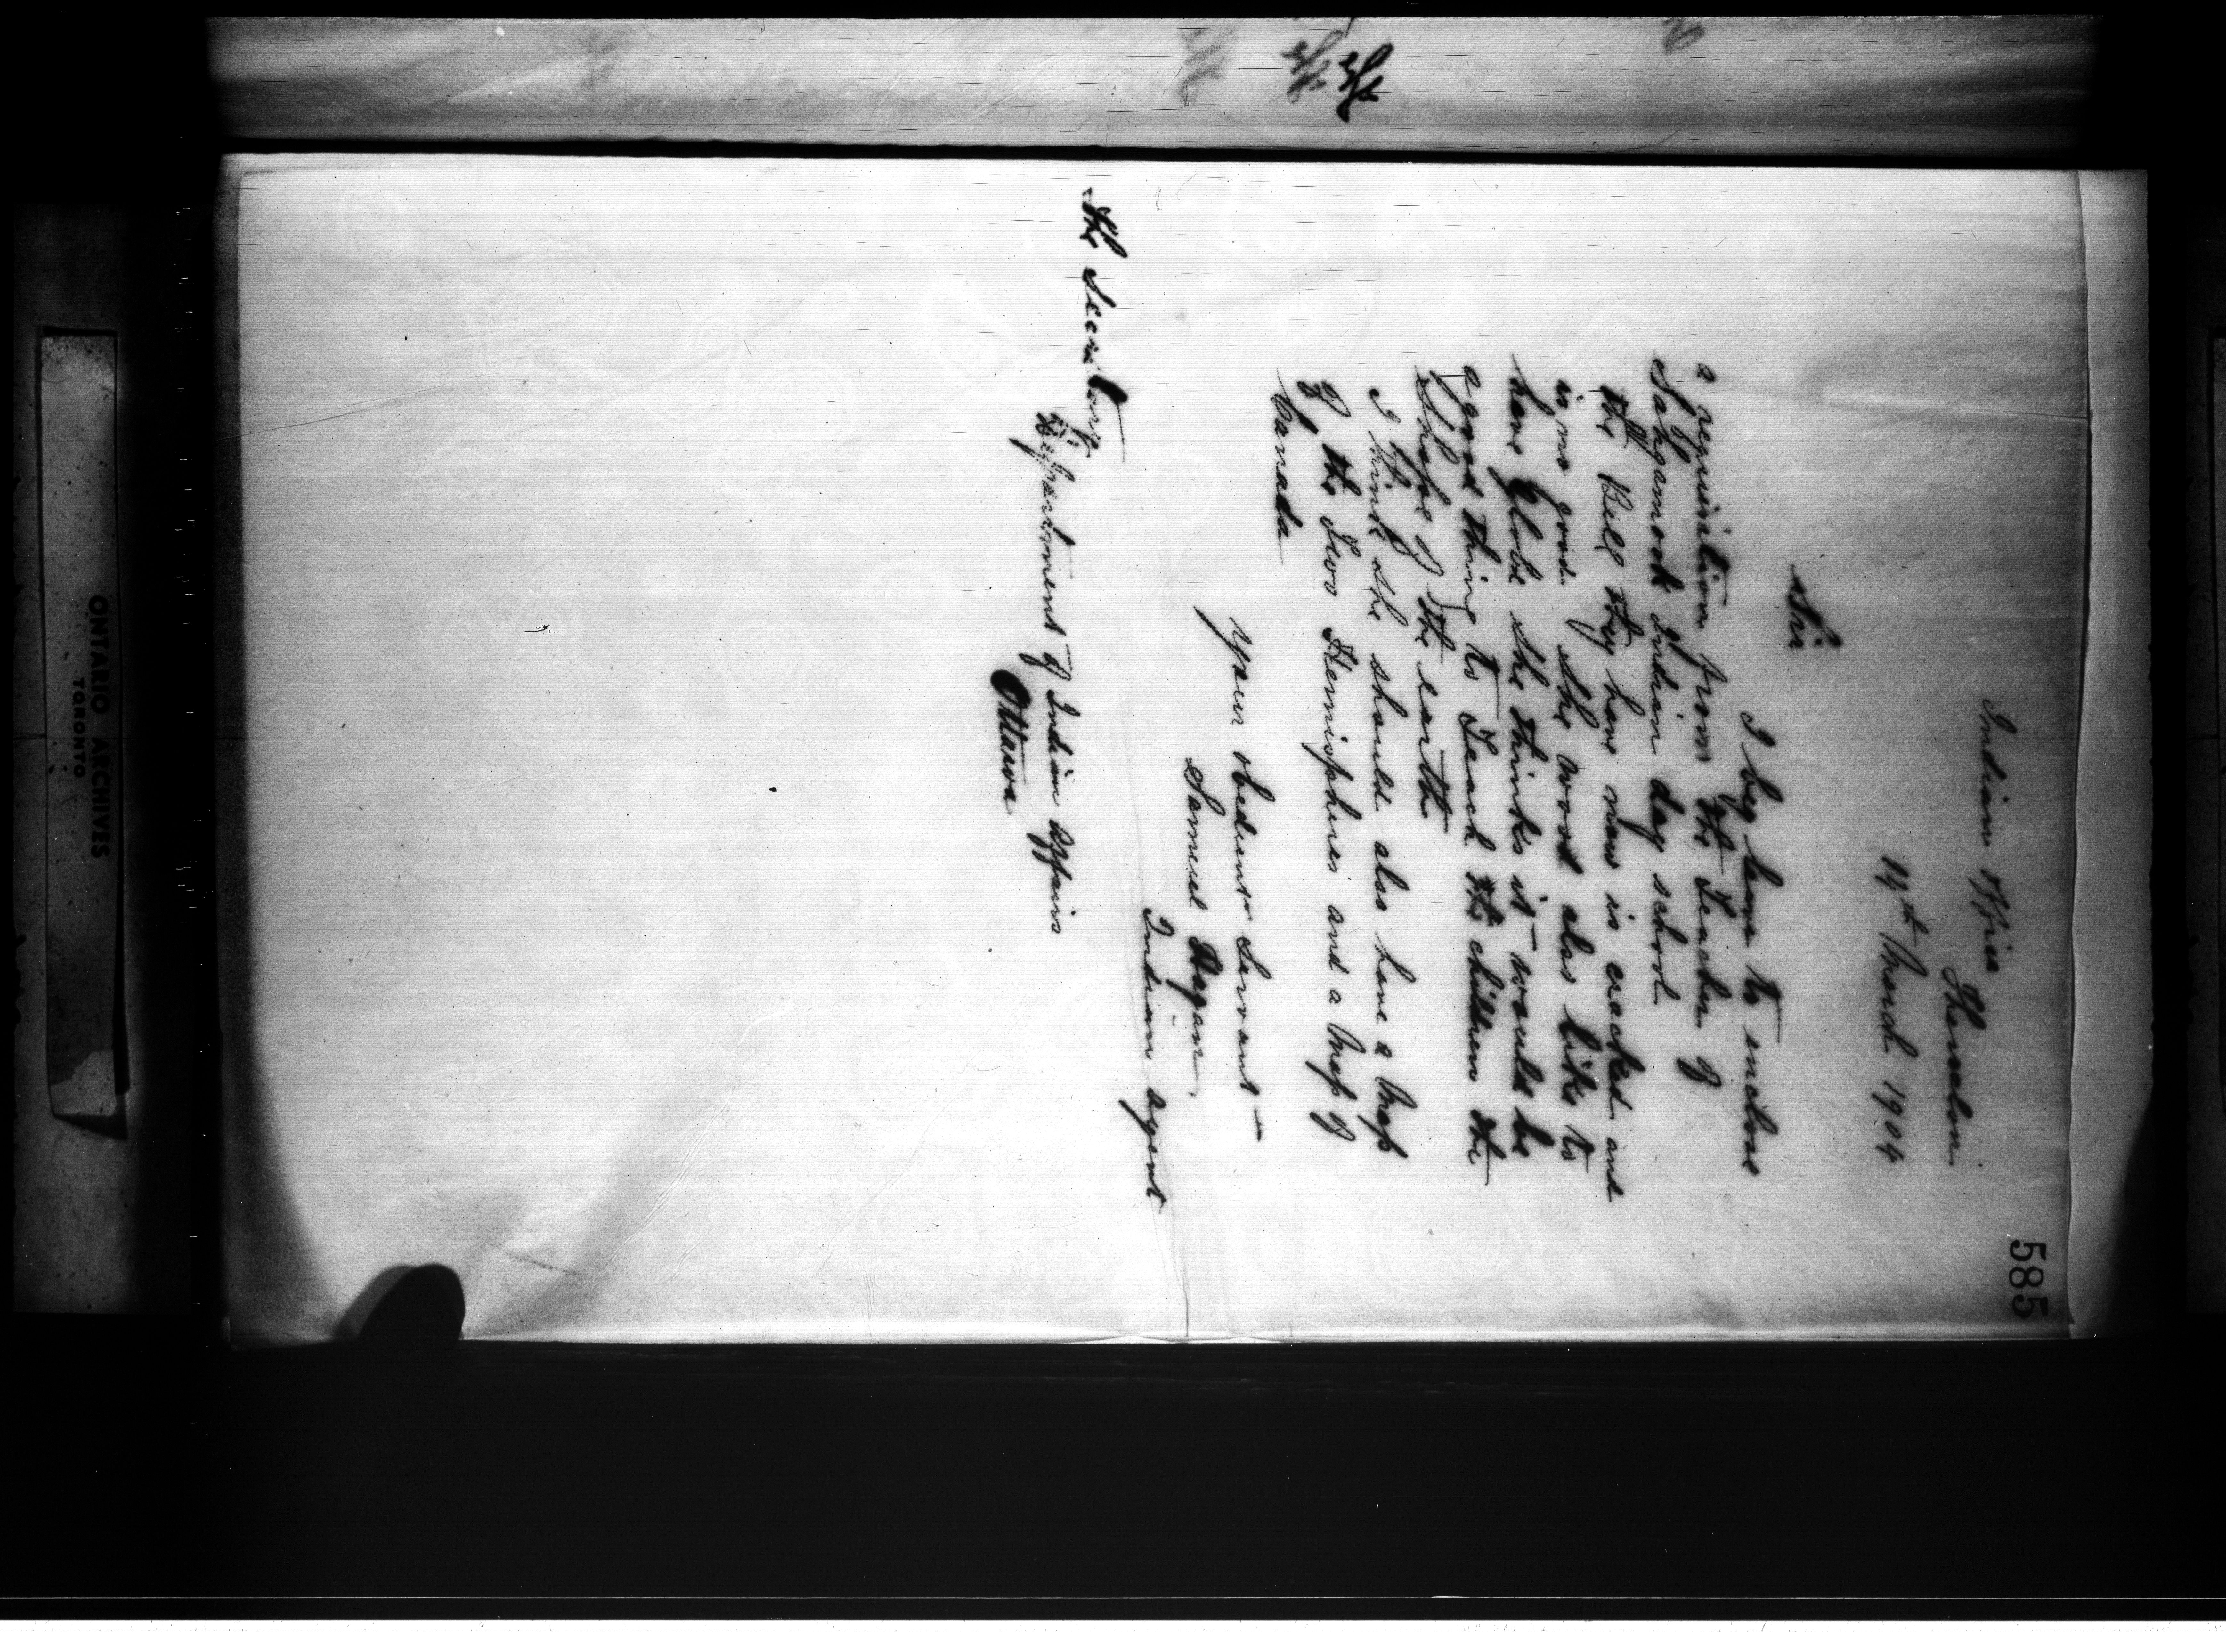 585
Indian Office
Thessalon
14th March 1904
Sir
I beg leave to enclose
a requisition from the Teacher of
Sahgamook Indian day school
the Bell they have now is cracked and
is no good. She wood also like to
have Globe she thinks it would be
a good thing to Teach the children the
Shape of the earth
I think she should also have a Map
of the Two Hemispheres and a Map of
Canada
Your obedient Servant
Samuel Hagan
Indian agent
The Secretary
Department of Indian Affairs
Ottawa
ONTARIO ARCHIVES
TORONTO